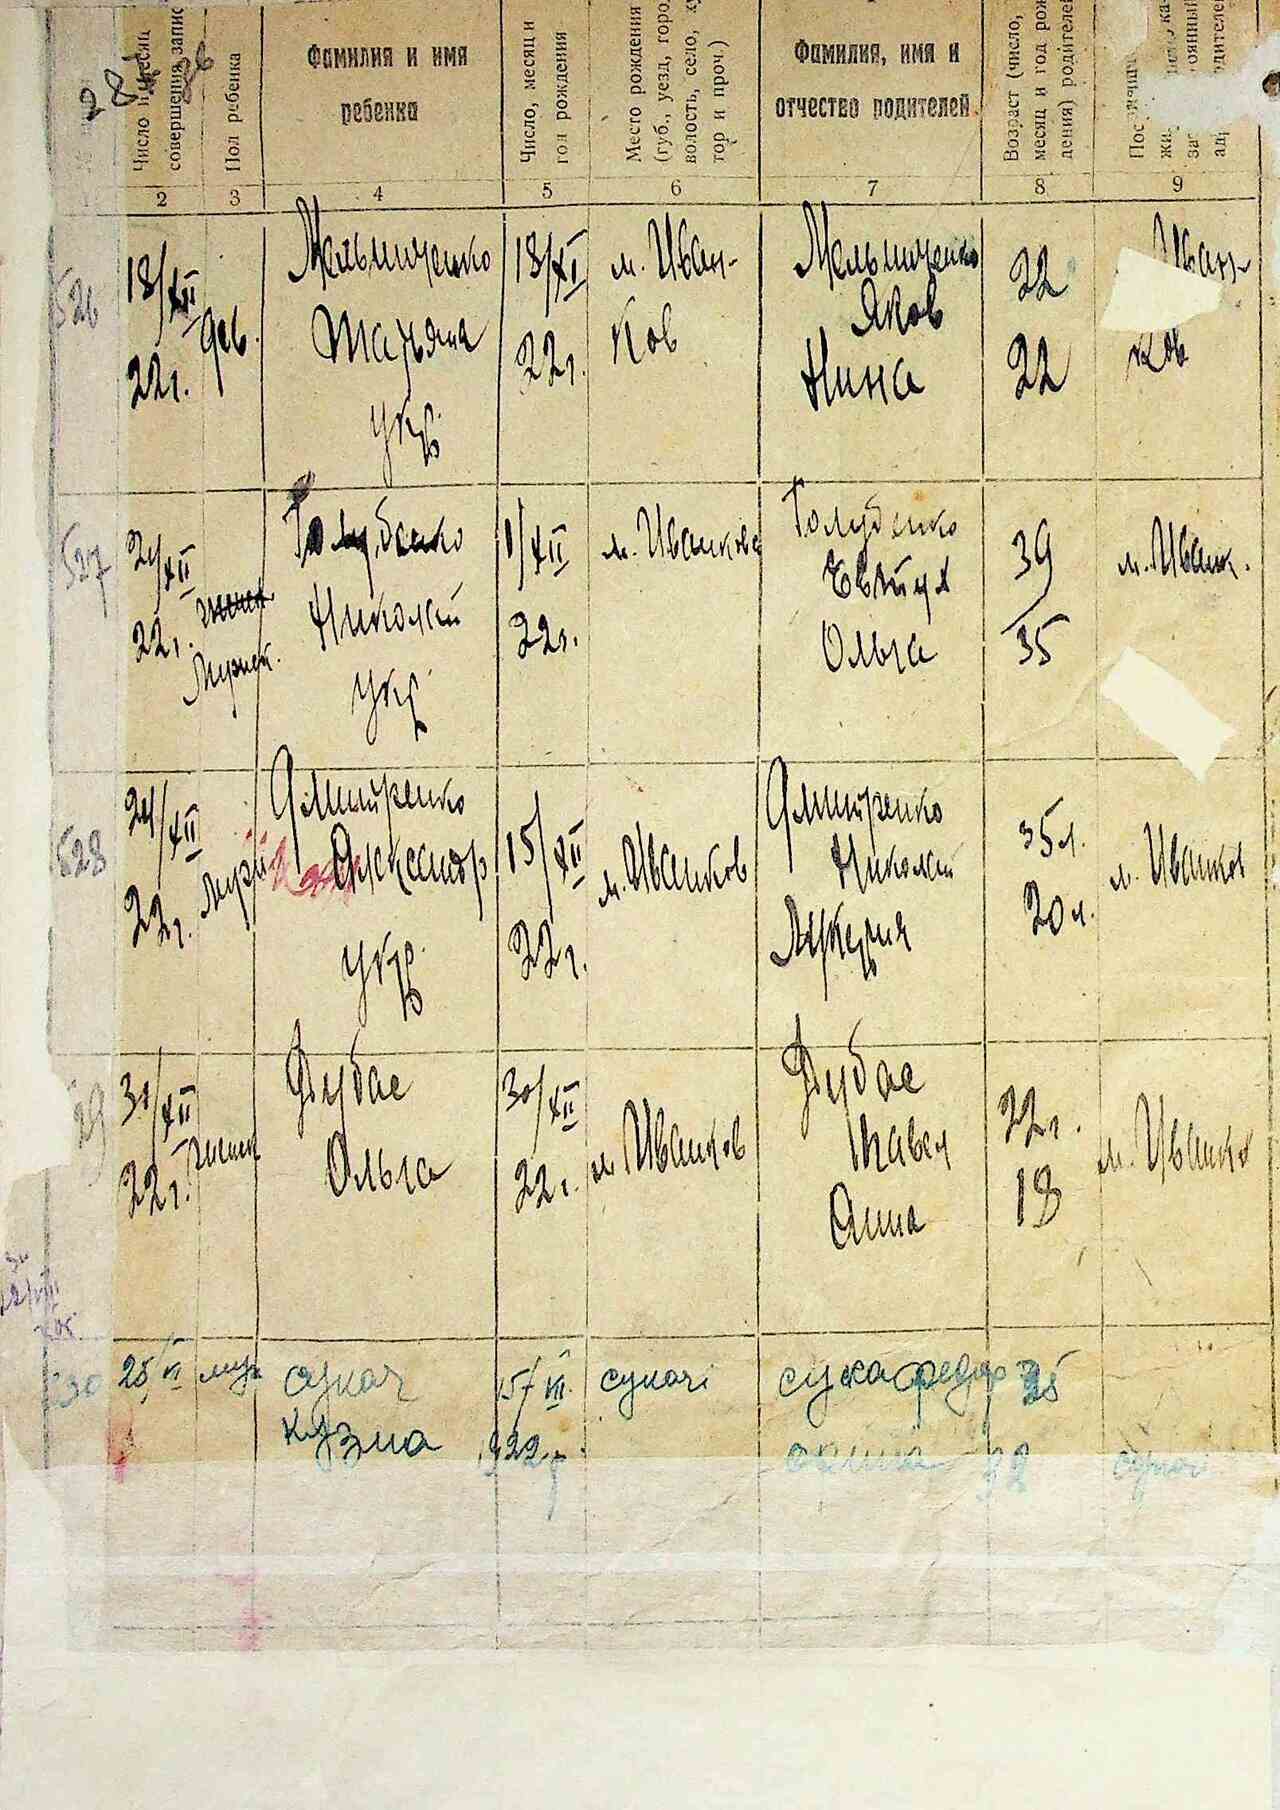 Число и месяц совершения запис
Пол ребенка
Фамилия и имя
ребенка
Число, месяц и
год рождения
Место рождения
(губ., уезд, горо
волость, село, ху
тор и проч.)
Фамилия, имя и
отчество родителей
Возраст (число,
месяц и год рож
дения) родителе
2 3 4 5 6 7 8 9
526
18/XII
22г.
дев.
Мельниченко
Татьяна
укр.
18/XI
22г.
м. Иван-
ков
Мельниченко
Яков
Нина
22
22
Иван-
ков
527
21/XII
22г.
Мужск.
Голубенко
Николай
укр
1/XII
22г.
м. Иванков
Голубенко
Евтух
Ольга
39
35
м. Иванк.
528
24/XII
22г.
Муж
Дмитренко
Александр
укр.
15/XII
22г.
м. Иванков
Дмитренко
Николай
Лукерия
35л.
20л.
м. Иванков
29
30/XII
22г.
женск
Дубас
Ольга
30/XII
22г.
м. Иванков
Дубас
Павел
Анна
22г.
18
м. Иванко
530
25/VII
муж
сукач
кузма
15/VII
922г
сукачі
сука федор
35
32